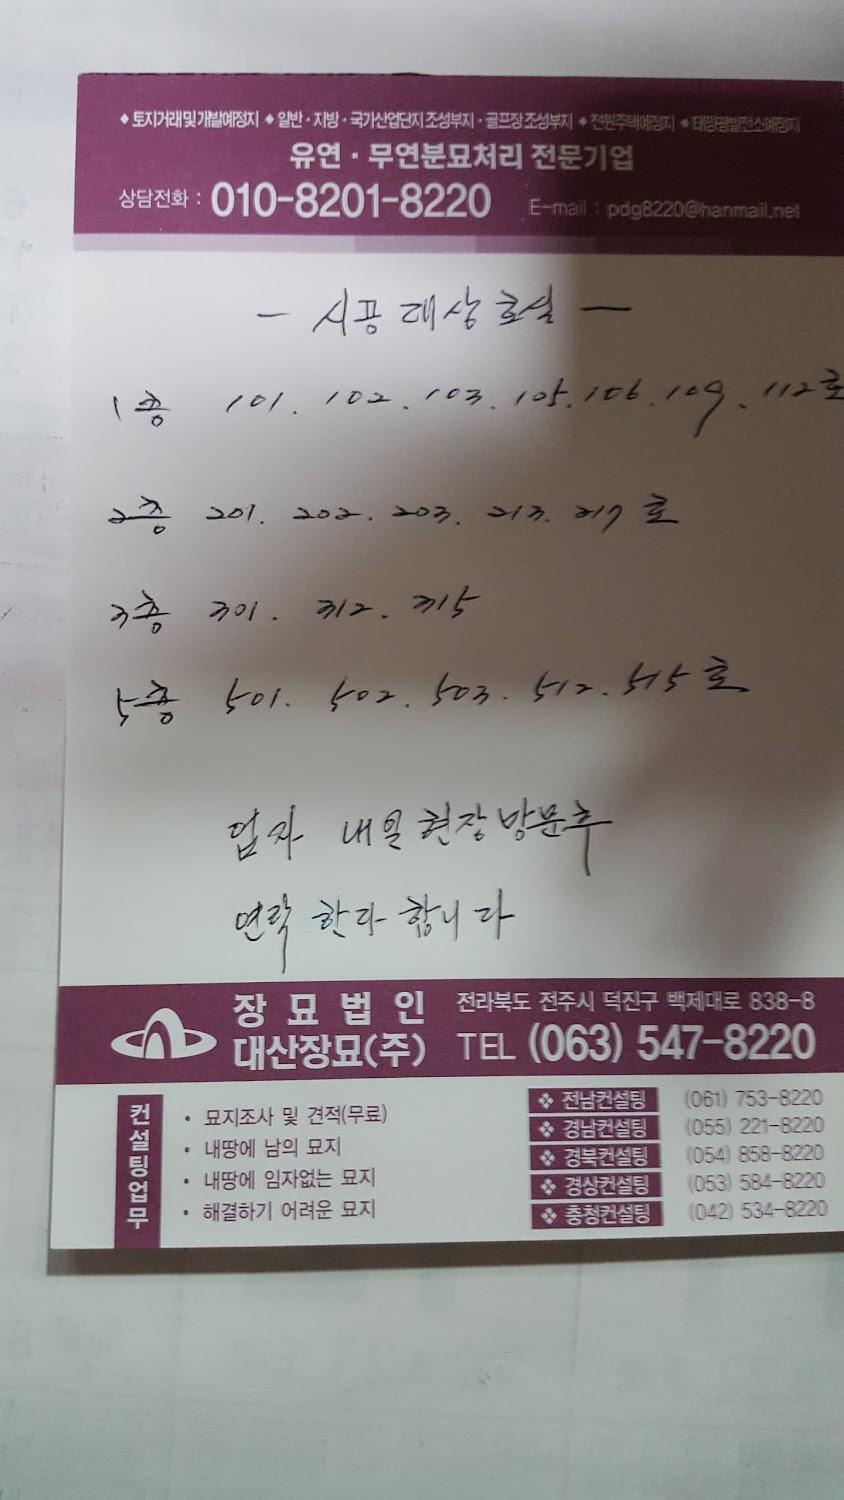 ◆ 토지거래 및 개발예정지 ◆ 일반·지방·국가산업단지 조성부지·골프장 조성부지 ◆ 전원주택예정지 ◆ 태양광발전소예정지
유연·무연분묘처리 전문기업
상담전화 : 010-8201-8220 E-mail : pdg8220@hanmail.net
- 시공 대상 호실 -
1층 101. 102. 103. 105. 106. 109. 112호
2층 201. 202. 203. 213. 217호
3층 301. 312. 315
5층 501. 502. 503. 512. 515호
업자 내일 현장 방문후
연락 한다 합니다
장묘법인 전라북도 전주시 덕진구 백제대로 838-8
대산장묘(주) TEL (063) 547-8220
컨설팅업무
• 묘지조사 및 견적(무료)
• 내땅에 남의 묘지
• 내땅에 임자없는 묘지
• 해결하기 어려운 묘지
❖ 전남컨설팅 (061) 753-8220
❖ 경남컨설팅 (055) 221-8220
❖ 경북컨설팅 (054) 858-8220
❖ 경상컨설팅 (053) 584-8220
❖ 충청컨설팅 (042) 534-8220